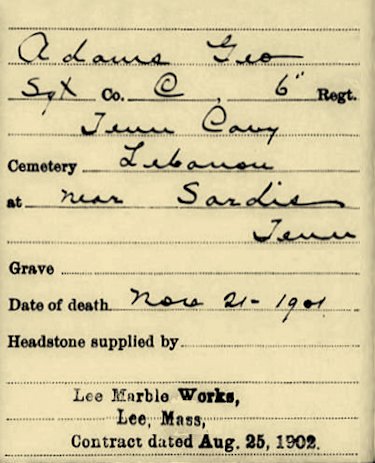 Adams Geo
Sgt Co. C, 6" Regt.
Tenn Cavy
Cemetery Lebanon
at near Sardis
Tenn
Grave
Date of death Nov 21 - 1901
Headstone supplied by
Lee Marble Works,
Lee, Mass,
Contract dated Aug. 25, 1902.